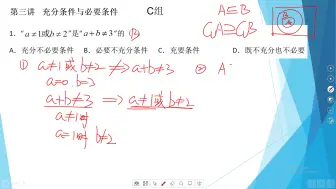 第三讲 充分条件与必要条件 C组
1. “a≠1或b≠2”是“a+b≠3”的 (B)
A. 充分不必要条件 B. 必要不充分条件 C. 充要条件 D. 既不充分也不必要
A⊆B
∁A⊇∁B
① a≠1或b≠2 ⇏ a+b≠3
② A
a=0. b=3
a+b≠3 ⇒ a≠1或b≠2
a≠1时
a=1时 b≠2